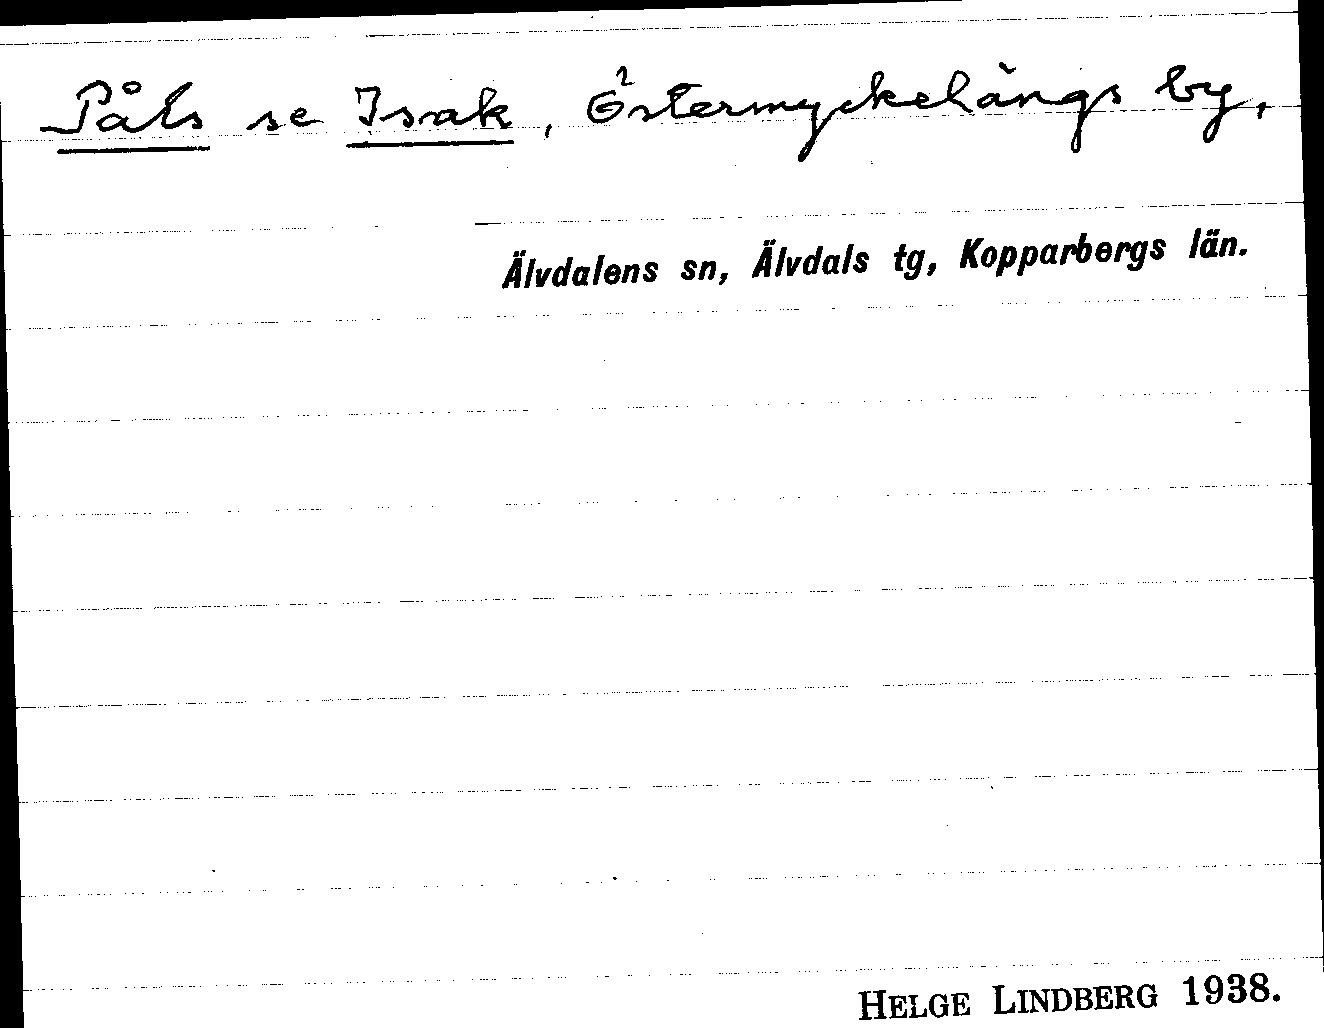 Påls se Isak, Östermyckelängs by,
Älvdalens sn, Älvdals tg, Kopparbergs län.
HELGE LINDBERG 1938.